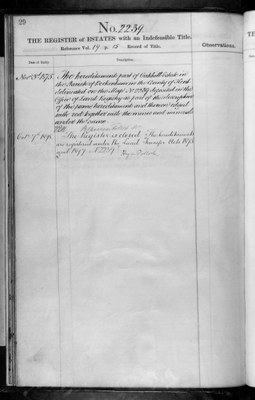 29
No. 2239
THE REGISTER of ESTATES with an Indefeasible Title.
Reference Vol. 19 p. Record of Title.
Observations.
Date of Entry.
Description.
Nov 23d 1875. The hereditaments part of Estate in
the Parish of in the County of Kent
delineated on the Map No 2239 deposited in the
Office of Land Registry as part of the description
of the same hereditaments and thereon edged
with red together with the mines and minerals
under the same.
Octr 7th 1898 The Register is closed. The hereditaments
are registered under the Land Transfer Acts 1875
and 1897